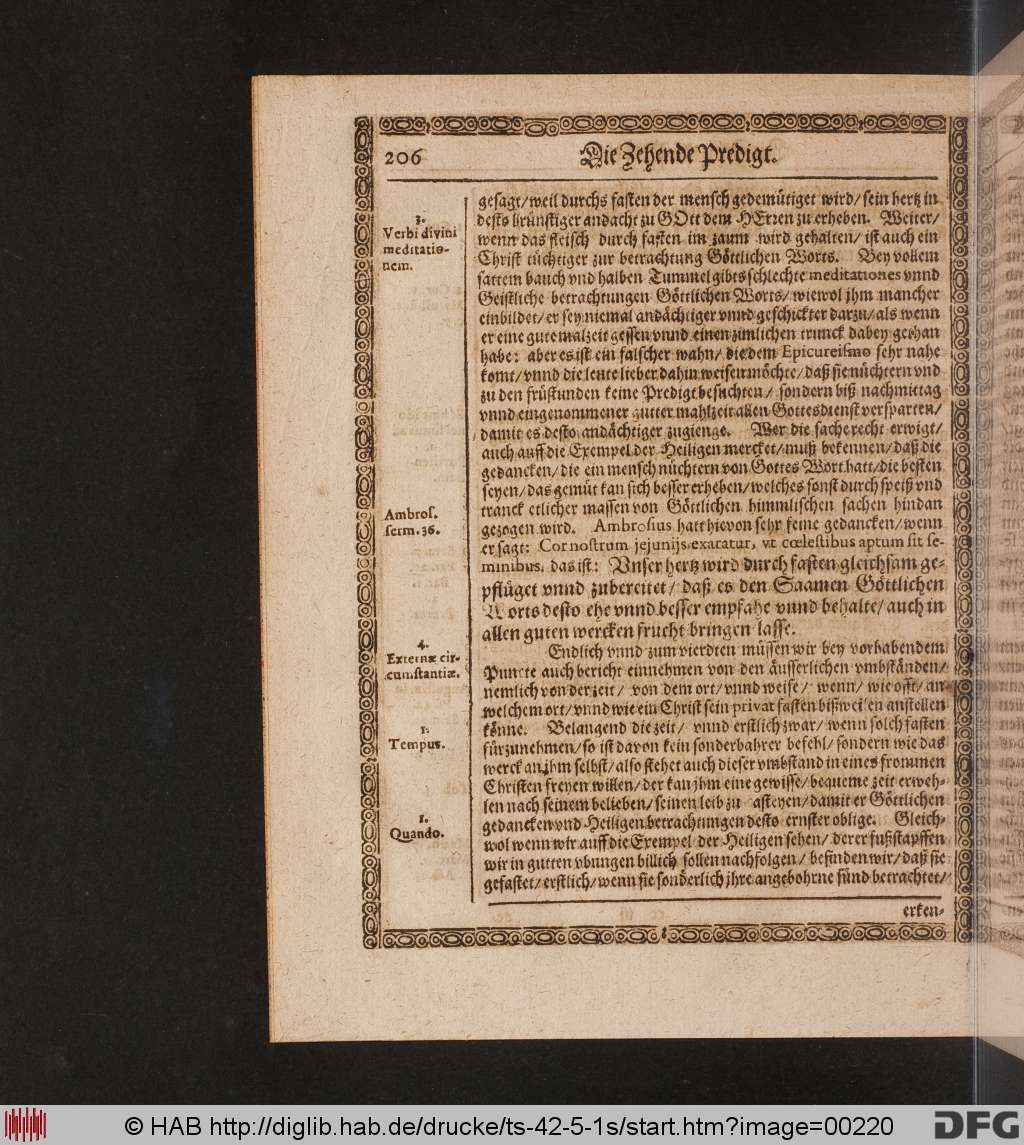 206
Die Zehende Predigt.
3.
Verbi divini
meditatio-
nem.
gesagt/ weil durchs fasten der mensch gedemütiget wird/ sein hertz in
desto brünstiger andacht zu GOtt dem HErren zu erheben. Weiter/
wenn das fleisch durch fasten im zaum wird gehalten/ ist auch ein
Christ tüchtiger zur betrachtung Göttlichen Worts. Bey vollem
sattem bauch vnd halben Tummel gibts schlechte meditationes vnnd
Geistliche betrachtungen Göttlichen Worts/ wiewol jhm mancher
einbildet/ er sey niemal andächtiger vnnd geschickter darzu/ als wenn
er eine gute malzeit gessen vnnd einen zimlichen trunck dabey gethan
habe: aber es ist ein falscher wahn/ die dem Epicureismo sehr nahe
komt/ vnnd die leute lieber dahin weisen möchte/ daß sie nüchtern vnd
zu den früstunden keine Predigt besuchten/ sondern biß nachmittag
vnnd eingenommener gutter mahlzeit allen Gottesdienst versparten/
damit es desto andächtiger zugienge. Wer die sache recht erwigt/
auch auff die Exempel der Heiligen mercket/ muß bekennen/ daß die
gedancken/ die ein mensch nüchtern von Gottes Wort hatt/ die besten
seyen/ das gemüt kan sich besser erheben/ welches sonst durch speiß vnd
tranck etlicher massen von Göttlichen himmlischen sachen hindan
gezogen wird. Ambrosius hatt hievon sehr feine gedancken/ wenn
er sagt: Cor nostrum jejunijs exaratur, vt cœlestibus aptum sit se-
minibus, das ist: Vnser hertz wird durch fasten gleichsam ge-
pflüget vnnd zubereitet/ daß es den Saamen Göttlichen
Worts desto ehe vnnd besser empfahe vnnd behalte/ auch in
allen guten wercken frucht bringen lasse.
Ambros.
serm. 36.
4.
Externæ cir-
cumstantiæ.
Endlich vnnd zum vierdten müssen wir bey vorhabendem
Puncte auch bericht einnehmen von den äusserlichen vmbständen/
nemlich von der zeit/ von dem ort/ vnnd weise/ wenn/ wie offt/ an
welchem ort/ vnnd wie ein Christ sein privat fasten bißweilen anstellen
könne. Belangend die zeit/ vnnd erstlich zwar/ wenn solch fasten
fürzunehmen/ so ist davon kein sonderbahrer befehl/ sondern wie das
werck an jhm selbst/ also stehet auch dieser vmbstand in eines frommen
Christen freyen willen/ der kan jhm eine gewisse/ bequeme zeit erweh-
len nach seinem belieben/ seinen leib zu asteyen/ damit er Göttlichen
gedancken vnd Heiligen betrachtungen desto ernster oblige. Gleich-
wol wenn wir auff die Exempel der Heiligen sehen/ derer fußstapffen
wir in gutten vbungen billich sollen nachfolgen/ befinden wir/ daß sie
gefastet/ erstlich/ wenn sie sonderlich jhre angebohrne sünd betrachtet/
1.
Tempus.
1.
Quando.
erken-
© HAB http://diglib.hab.de/drucke/ts-42-5-1s/start.htm?image=00220
DFG